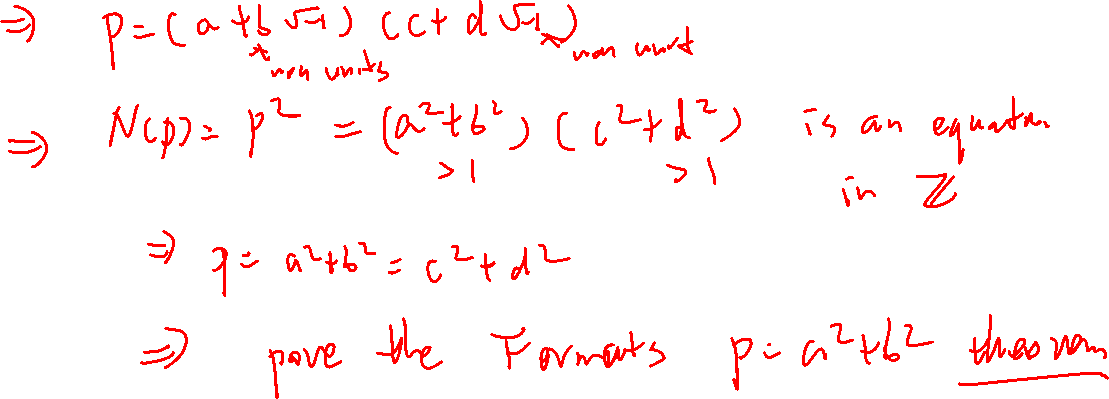 ⇒ p = (a + b√-1) (c + d√-1)
non units non unit
⇒ N(p) = p² = (a²+b²) (c²+d²) is an equation
>1 >1 in ℤ
⇒ p = a²+b² = c²+d²
⇒ prove the Formats p = a²+b² theorem